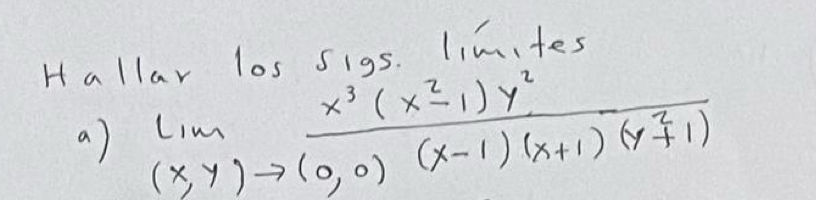 Hallar los sigs. límites
a) Lim (x,y)→(0,0) x³(x²-1)y² / (x-1)(x+1)(y²+1)